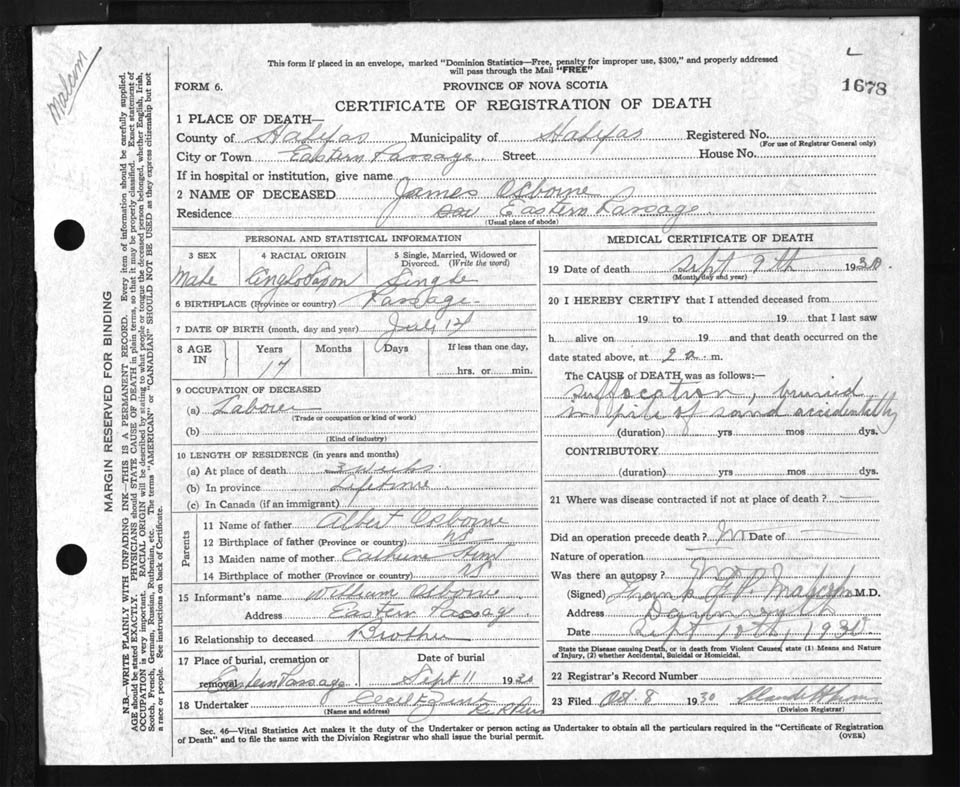 Malcom
This form if placed in an envelope, marked "Dominion Statistics—Free, penalty for improper use, $300," and properly addressed
will pass through the Mail "FREE"
L
1678
FORM 6.
PROVINCE OF NOVA SCOTIA
CERTIFICATE OF REGISTRATION OF DEATH
1 PLACE OF DEATH—
County of Halifax Municipality of Halifax Registered No.
(For use of Registrar General only)
City or Town Eastern Passage Street House No.
If in hospital or institution, give name
2 NAME OF DECEASED James Osborne
Residence Eastern Passage
(Usual place of abode)
PERSONAL AND STATISTICAL INFORMATION
3 SEX 4 RACIAL ORIGIN 5 Single, Married, Widowed or
Divorced. (Write the word)
Male Anglo Saxon Single
6 BIRTHPLACE (Province or country) Passage
7 DATE OF BIRTH (month, day and year) July 14
8 AGE IN Years Months Days If less than one day,
17 hrs. or min.
9 OCCUPATION OF DECEASED
(a) Laborer
(Trade or occupation or kind of work)
(b)
(Kind of industry)
10 LENGTH OF RESIDENCE (in years and months)
(a) At place of death 3 weeks
(b) In province Lifetime
(c) In Canada (if an immigrant)
Parents
11 Name of father Albert Osborne
12 Birthplace of father (Province or country) NS
13 Maiden name of mother Catherine
14 Birthplace of mother (Province or country) NS
15 Informant's name William Osborne
Address Eastern Passage
16 Relationship to deceased Brother
17 Place of burial, cremation or Date of burial
removal Eastern Passage Sept 11 1930
18 Undertaker Cecil E Zink
(Name and address)
MEDICAL CERTIFICATE OF DEATH
19 Date of death Sept 9th 1930
(Month, day and year)
20 I HEREBY CERTIFY that I attended deceased from
19 to 19 that I last saw
h alive on 19 and that death occurred on the
date stated above, at 2 a. m.
The CAUSE of DEATH was as follows:—
Suffocation, buried
in pile of sand accidentally
(duration) yrs mos dys.
CONTRIBUTORY
(duration) yrs mos dys.
21 Where was disease contracted if not at place of death? —
Did an operation precede death? No Date of —
Nature of operation
Was there an autopsy? No
(Signed) Frank Malcolm M.D.
Address Dartmouth
Date Sept 10th, 1930
State the Disease causing Death, or in death from Violent Causes, state (1) Means and
Nature of Injury, (2) whether Accidental, Suicidal or Homicidal.
22 Registrar's Record Number
23 Filed Oct. 8 1930
(Division Registrar)
Sec. 46—Vital Statistics Act makes it the duty of the Undertaker or person acting as Undertaker to obtain all the particulars required in the "Certificate of Registration
of Death" and to file the same with the Division Registrar who shall issue the burial permit.
(OVER)
MARGIN RESERVED FOR BINDING
N.B.—WRITE PLAINLY WITH UNFADING INK—THIS IS A PERMANENT RECORD. Every item of information should be carefully supplied.
AGE should be stated EXACTLY. PHYSICIANS should STATE CAUSE OF DEATH in plain terms, so that it may be properly classified. Exact statement of
OCCUPATION is very important. RACIAL ORIGIN will be described by stating to what people or tongue the deceased person belonged, whether English, Irish,
Scotch, French, German, Russian, Ruthenian, etc. The terms "AMERICAN" or "CANADIAN" SHOULD NOT BE USED as they express citizenship but not
a race or people. See instructions on back of Certificate.